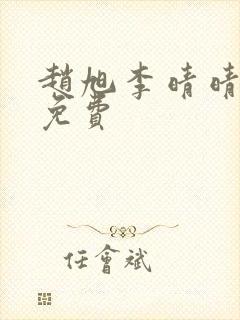 趙旭李晴晴
免費
任會斌